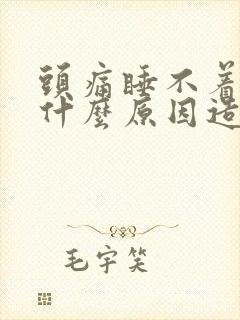 頭痛睡不着
什麼原因造
毛宇笑